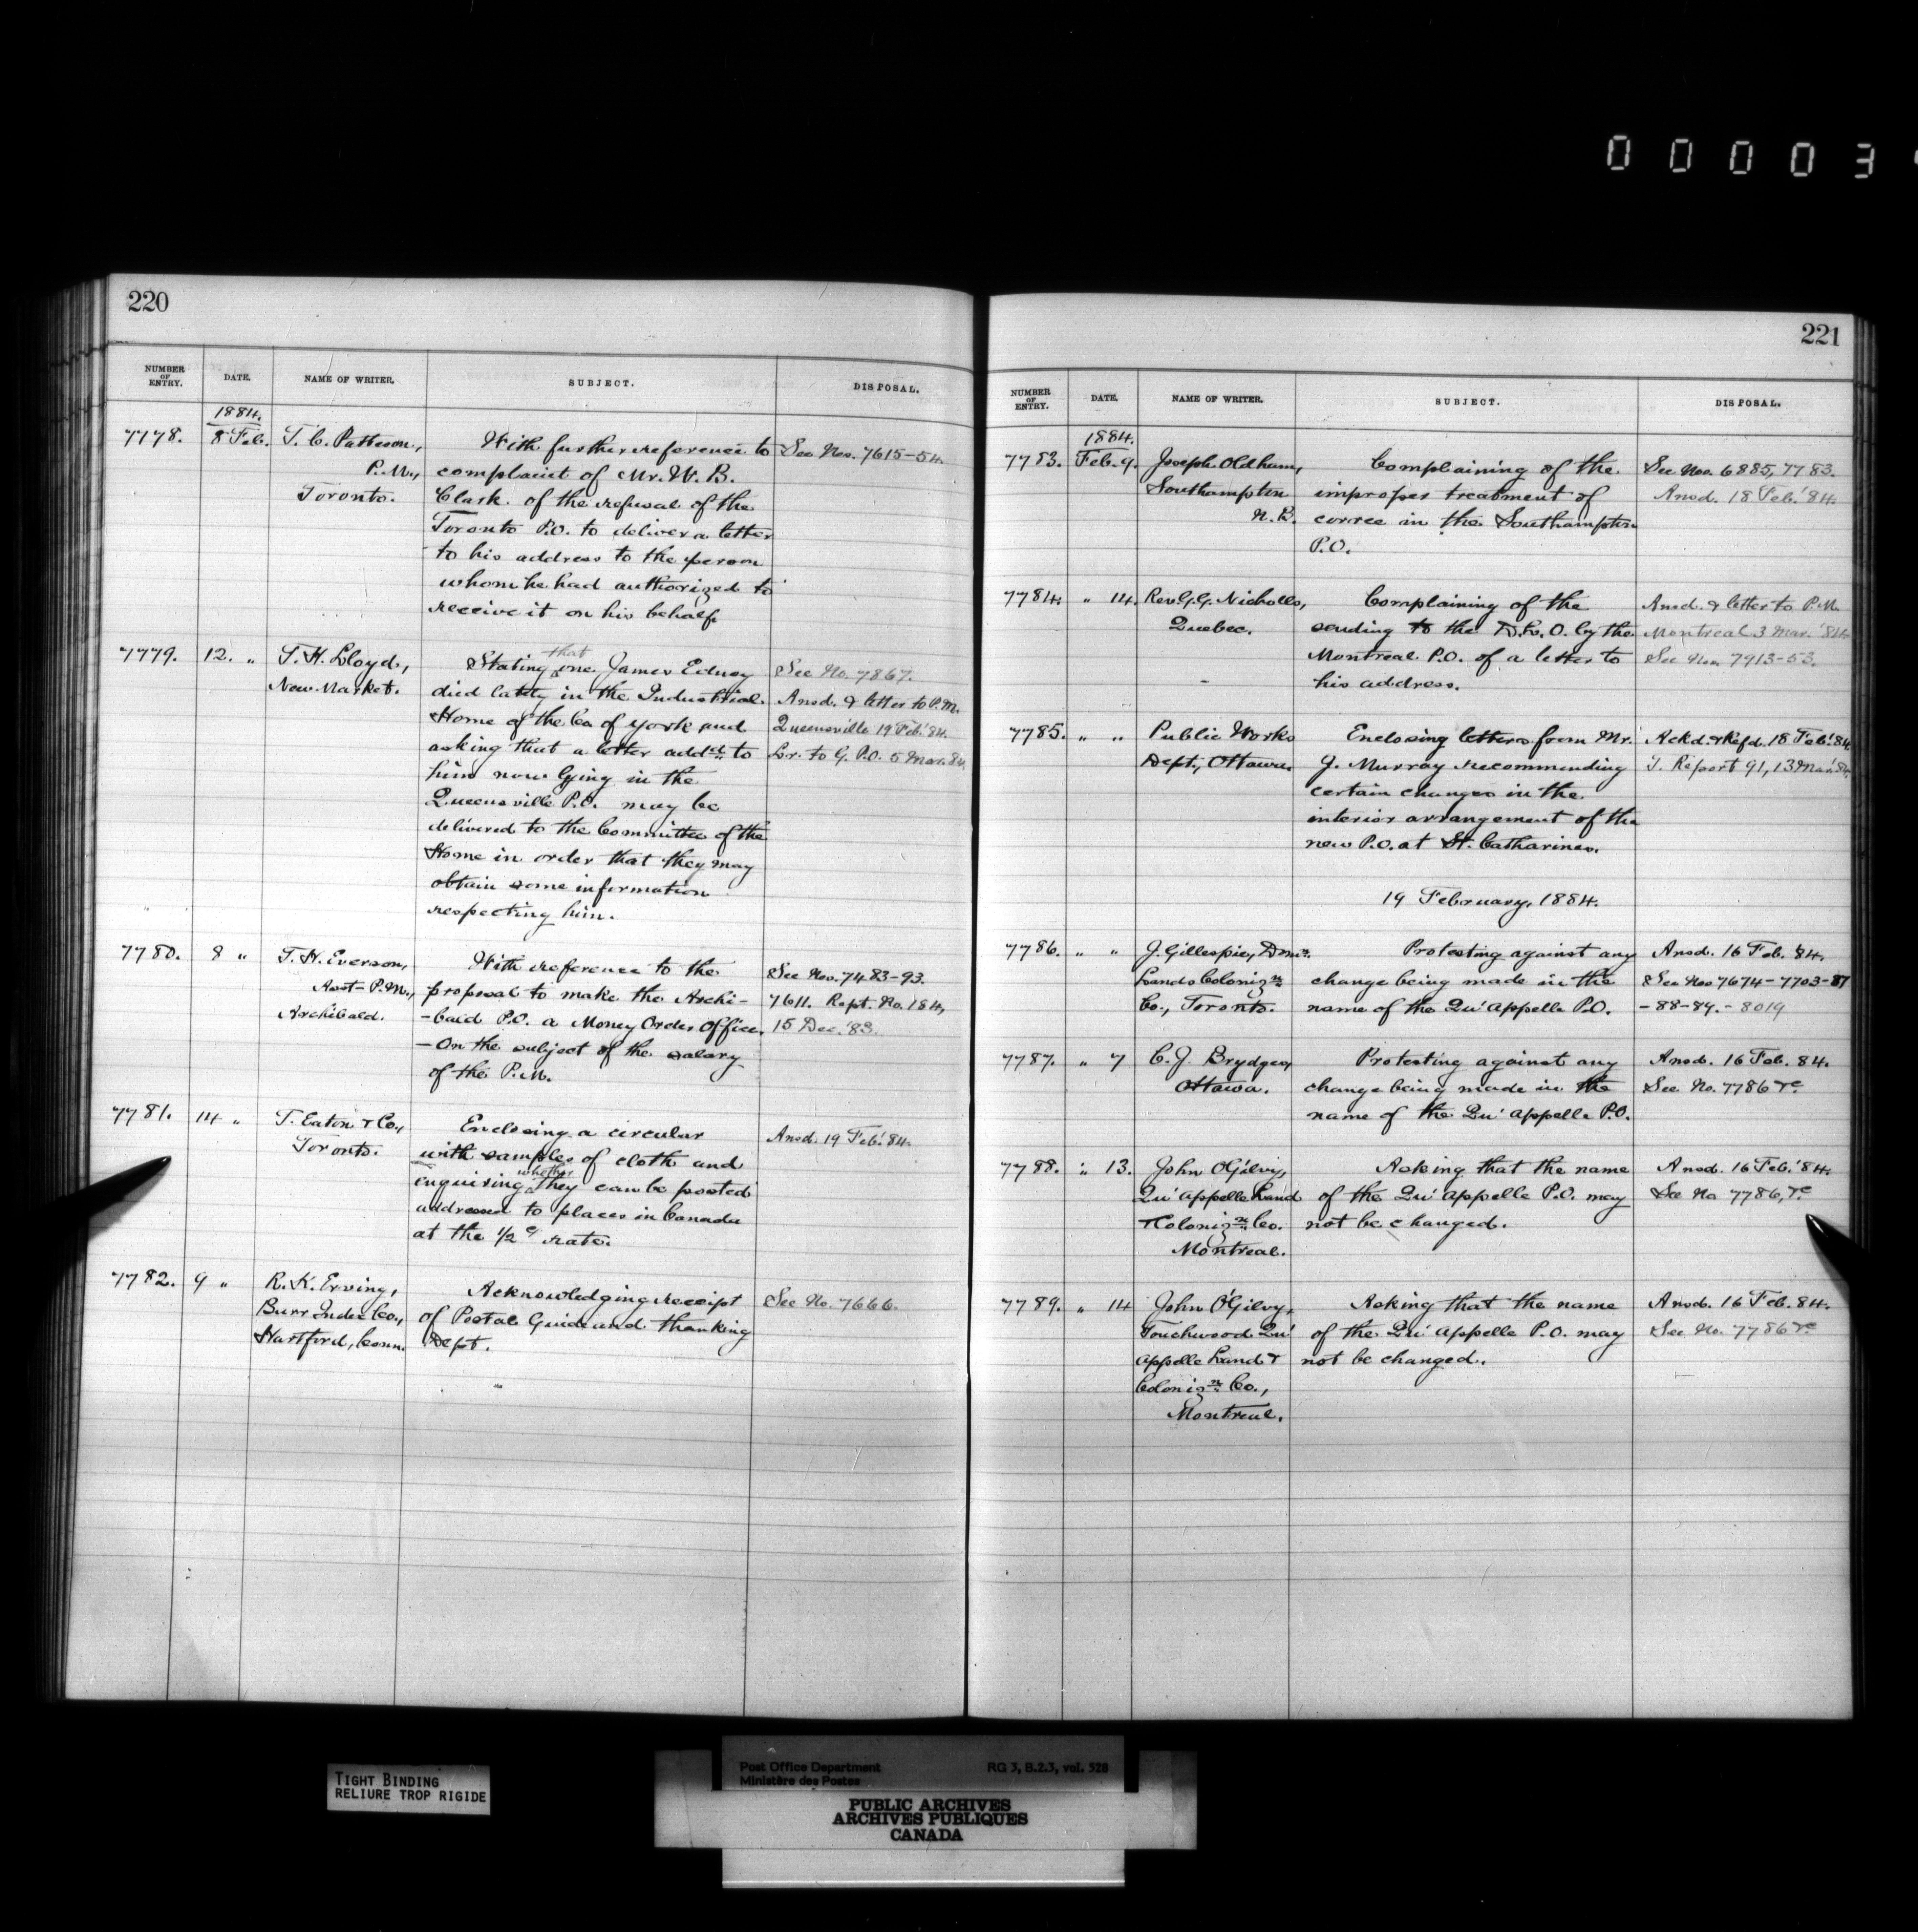 0 0 0 0 3
220
NUMBER OF ENTRY. DATE. NAME OF WRITER. SUBJECT. DISPOSAL.
1884.
7778. 8 Feb. T. C. Patteson, With further reference to See Nos. 7615-54.
P.M., complaint of Mr. W. B.
Toronto. Clark of the refusal of the
Toronto P.O. to deliver a letter
to his address to the person
whom he had authorized to
receive it on his behalf.
7779. 12. " T. H. Lloyd, Stating that one James Edney See No. 7867.
New Market. died lately in the Industrial Ansd. & letter to P.M.
Home of the Co. of York and Queensville 19 Feb. '84.
asking that a letter addd. to Lr. to G. P.O. 5 Mar. 84.
him now lying in the
Queensville P.O. may be
delivered to the Committee of the
Home in order that they may
obtain some information
respecting him.
7780. 8 " T. H. Everson, With reference to the See Nos. 7483-93.
Asst-P.M., proposal to make the Archi- 7611. Rept. No. 184,
Archibald. -bald P.O. a Money Order Office. 15 Dec. '83.
- On the subject of the salary
of the P.M.
7781. 14 " T. Eaton & Co., Enclosing a circular Ansd. 19 Feb. '84.
Toronto. with samples of cloth and
enquiring whether they can be posted
addressed to places in Canada
at the 1/2 c rate.
7782. 9 " R. K. Erving, Acknowledging receipt See No. 7666.
Burr Index Co., of Postal Guide and thanking
Hartford, Conn. Dept.
221
NUMBER OF ENTRY. DATE. NAME OF WRITER. SUBJECT. DISPOSAL.
1884.
7783. Feb. 9. Joseph Oldham, Complaining of the See Nos. 6885, 7783.
Southampton improper treatment of Ansd. 18 Feb. '84.
N.B. corrce in the Southampton
P.O.
7784. " 14. Rev. G. G. Nicholls, Complaining of the Ansd. & letter to P.M.
Quebec. sending to the D.L.O. by the Montreal 3 Mar. '84.
Montreal P.O. of a letter to See Nos. 7913-53.
his address.
7785. " " Public Works Enclosing letters from Mr. Ackd. & Refd. 18 Feb. '84.
Dept., Ottawa. J. Murray recommending T. Report 91, 13 Mar. 84.
certain changes in the
interior arrangement of the
new P.O. at St. Catharines.
19 February, 1884.
7786. " " J. Gillespie, Domn. Protesting against any Ansd. 16 Feb. '84.
Lands Colonizn. change being made in the See Nos 7674-7703-87
Co., Toronto. name of the Qu'Appelle P.O. -88-89.-8019
7787. " 7 C. J. Brydges, Protesting against any Ansd. 16 Feb. 84.
Ottawa. change being made in the See No. 7786 &c.
name of the Qu'Appelle P.O.
7788. " 13. John OGilvy, Asking that the name Ansd. 16 Feb. '84.
Qu'Appelle Land of the Qu'Appelle P.O. may See No 7786, &c.
& Colonizn. Co. not be changed.
Montreal.
7789. " 14 John OGilvy, Asking that the name Ansd. 16 Feb. 84.
Touchwood Qu' of the Qu'Appelle P.O. may See No. 7786 &c.
Appelle Land & not be changed.
Colonizn. Co.,
Montreal.
TIGHT BINDING
RELIURE TROP RIGIDE
Post Office Department RG 3, B.2.3, vol. 528
Ministère des Postes
PUBLIC ARCHIVES
ARCHIVES PUBLIQUES
CANADA